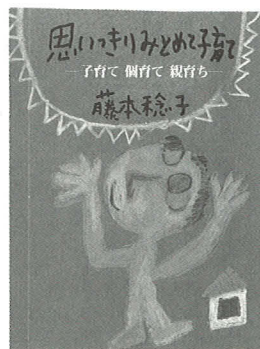 思いっきりみとめて子育て
—子育て 個育て 親育ち—
藤本稔子